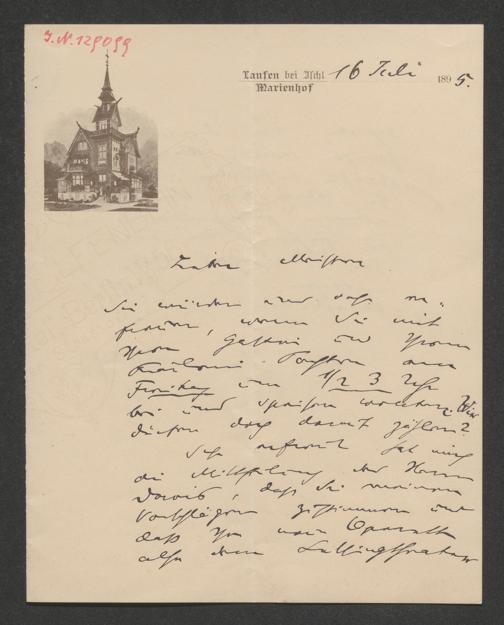 J.N. 129099
Laufen bei Ischl 16 Juli 1895.
Marienhof
Lieber Meister
Sie würden uns sehr er-
freuen, wenn Sie mit
Ihrer Gattin und Ihrem
Fräulein Tochter am
Freitag um 1/2 3 Uhr
bei uns speisen wollten. Wir
dürfen doch darauf zählen?
Sehr erfreut hat mich
die Mittheilung des Herrn
, daß Sie meinen
Vorschlägen zustimmen und
daß Ihre neue Operette
also dem